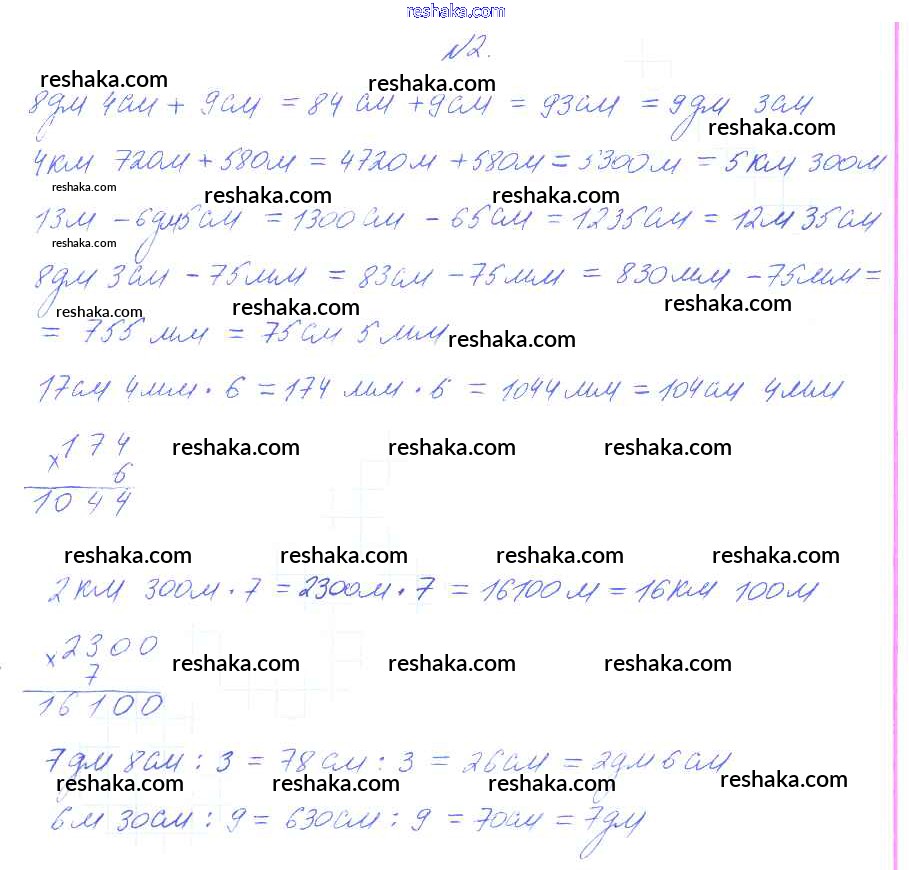 reshaka.com
№2.
reshaka.com reshaka.com
8дм 4см + 9см = 84 см + 9см = 93см = 9дм 3см
reshaka.com
4км 720м + 580м = 4720м + 580м = 5300м = 5км 300м
reshaka.com reshaka.com reshaka.com
13м - 6дм5см = 1300см - 65см = 1235см = 12м 35см
reshaka.com
8дм 3см - 75мм = 83см - 75мм = 830мм - 75мм =
reshaka.com reshaka.com reshaka.com
= 755 мм = 75см 5мм
reshaka.com
17см 4мм · 6 = 174 мм · 6 = 1044мм = 104см 4мм
× 174
reshaka.com reshaka.com reshaka.com
6
1044
reshaka.com reshaka.com reshaka.com reshaka.com
2км 300м · 7 = 2300м · 7 = 16100м = 16км 100м
× 2300
reshaka.com reshaka.com reshaka.com
7
16100
7дм 8см : 3 = 78см : 3 = 26см = 2дм 6см
reshaka.com reshaka.com reshaka.com reshaka.com
6м 30см : 9 = 630см : 9 = 70см = 7дм